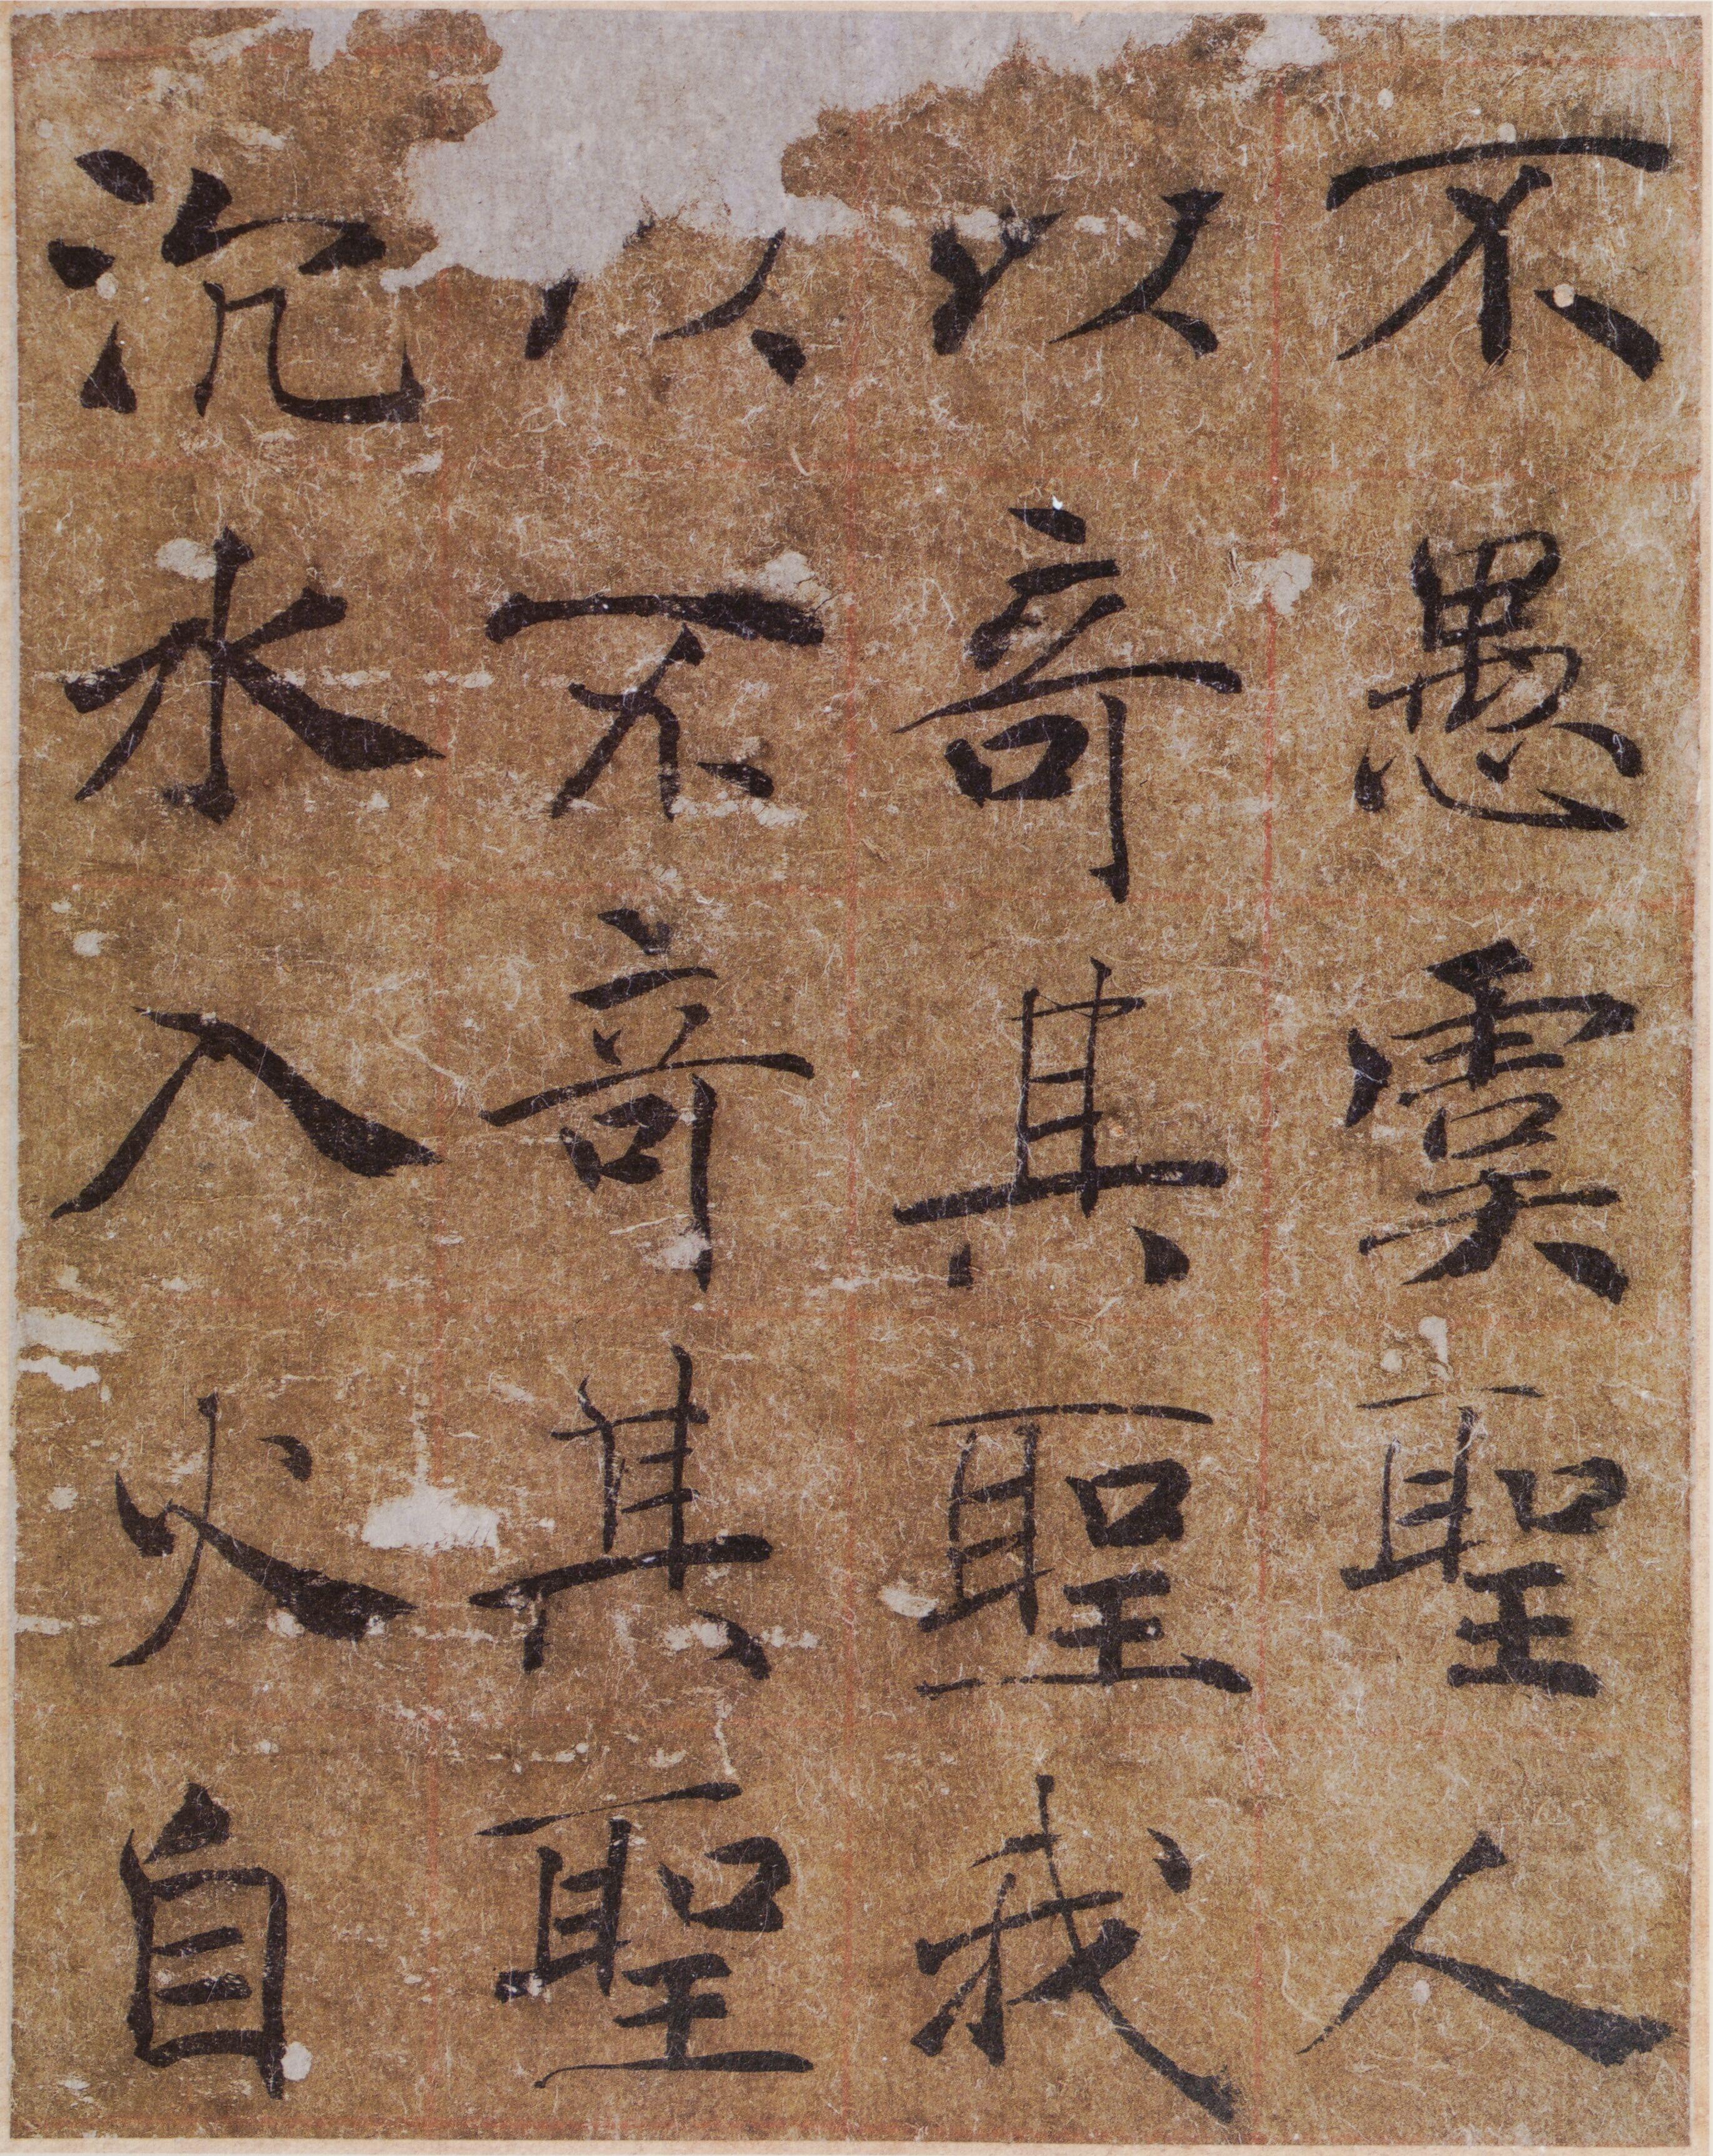 不愚虞聖人
以竒其聖我
以不竒其聖
沉水入火自